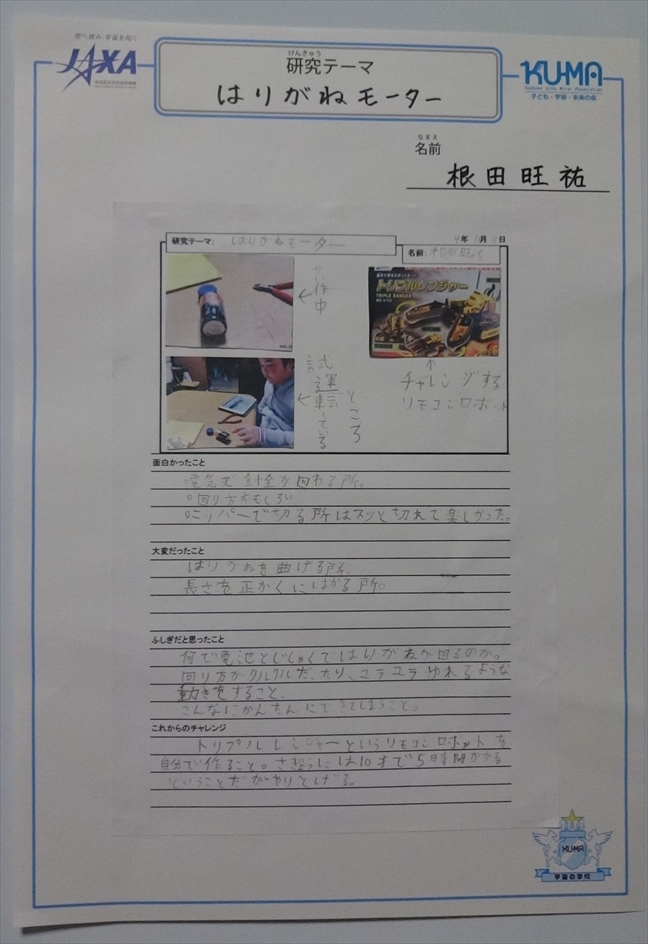 空へ挑み、宇宙を拓く
JAXA
けんきゅう
研究テーマ
はりがねモーター
KU-MA
Kodomo Uchu Mirai Association
子ども・宇宙・未来の会
なまえ
名前
根田旺祐
研究テーマ: はりがねモーター
年 月 日
名前:
作中
トリプルレンジャー
TRIPLE RANGER
試運転しているところ
チャレンジする
リモコンロボット
面白かったこと
電気で針金が回る所。
回り方がおもしろい
ニッパーで切る所はスッと切れて楽しかった。
大変だったこと
はりがねを曲げる所。
長さを正かくにはかる所。
ふしぎだと思ったこと
何で電池とじしゃくてはりがねが回るのか。
回り方がクルクルだったり、ユラユラゆれるような
動きをすること
こんなにかんたんにできてしまうこと。
これからのチャレンジ
トリプルレンジャーというリモコンロボットを
自分で作ること。さぎょうには10才で5時間かかる
ということだがやりとげる。
KU-MA
宇宙の学校